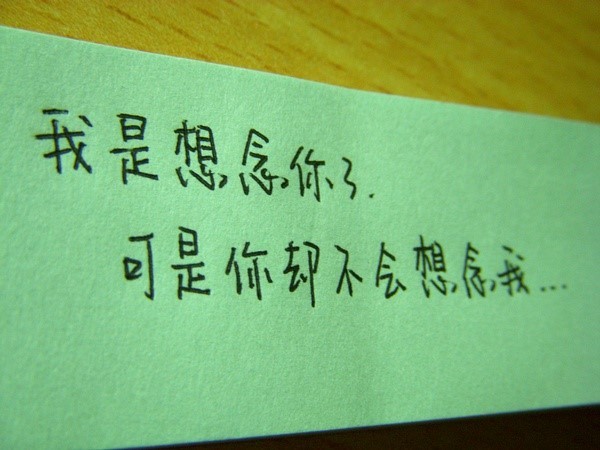 我是想念你了.
可是你却不会想念我...